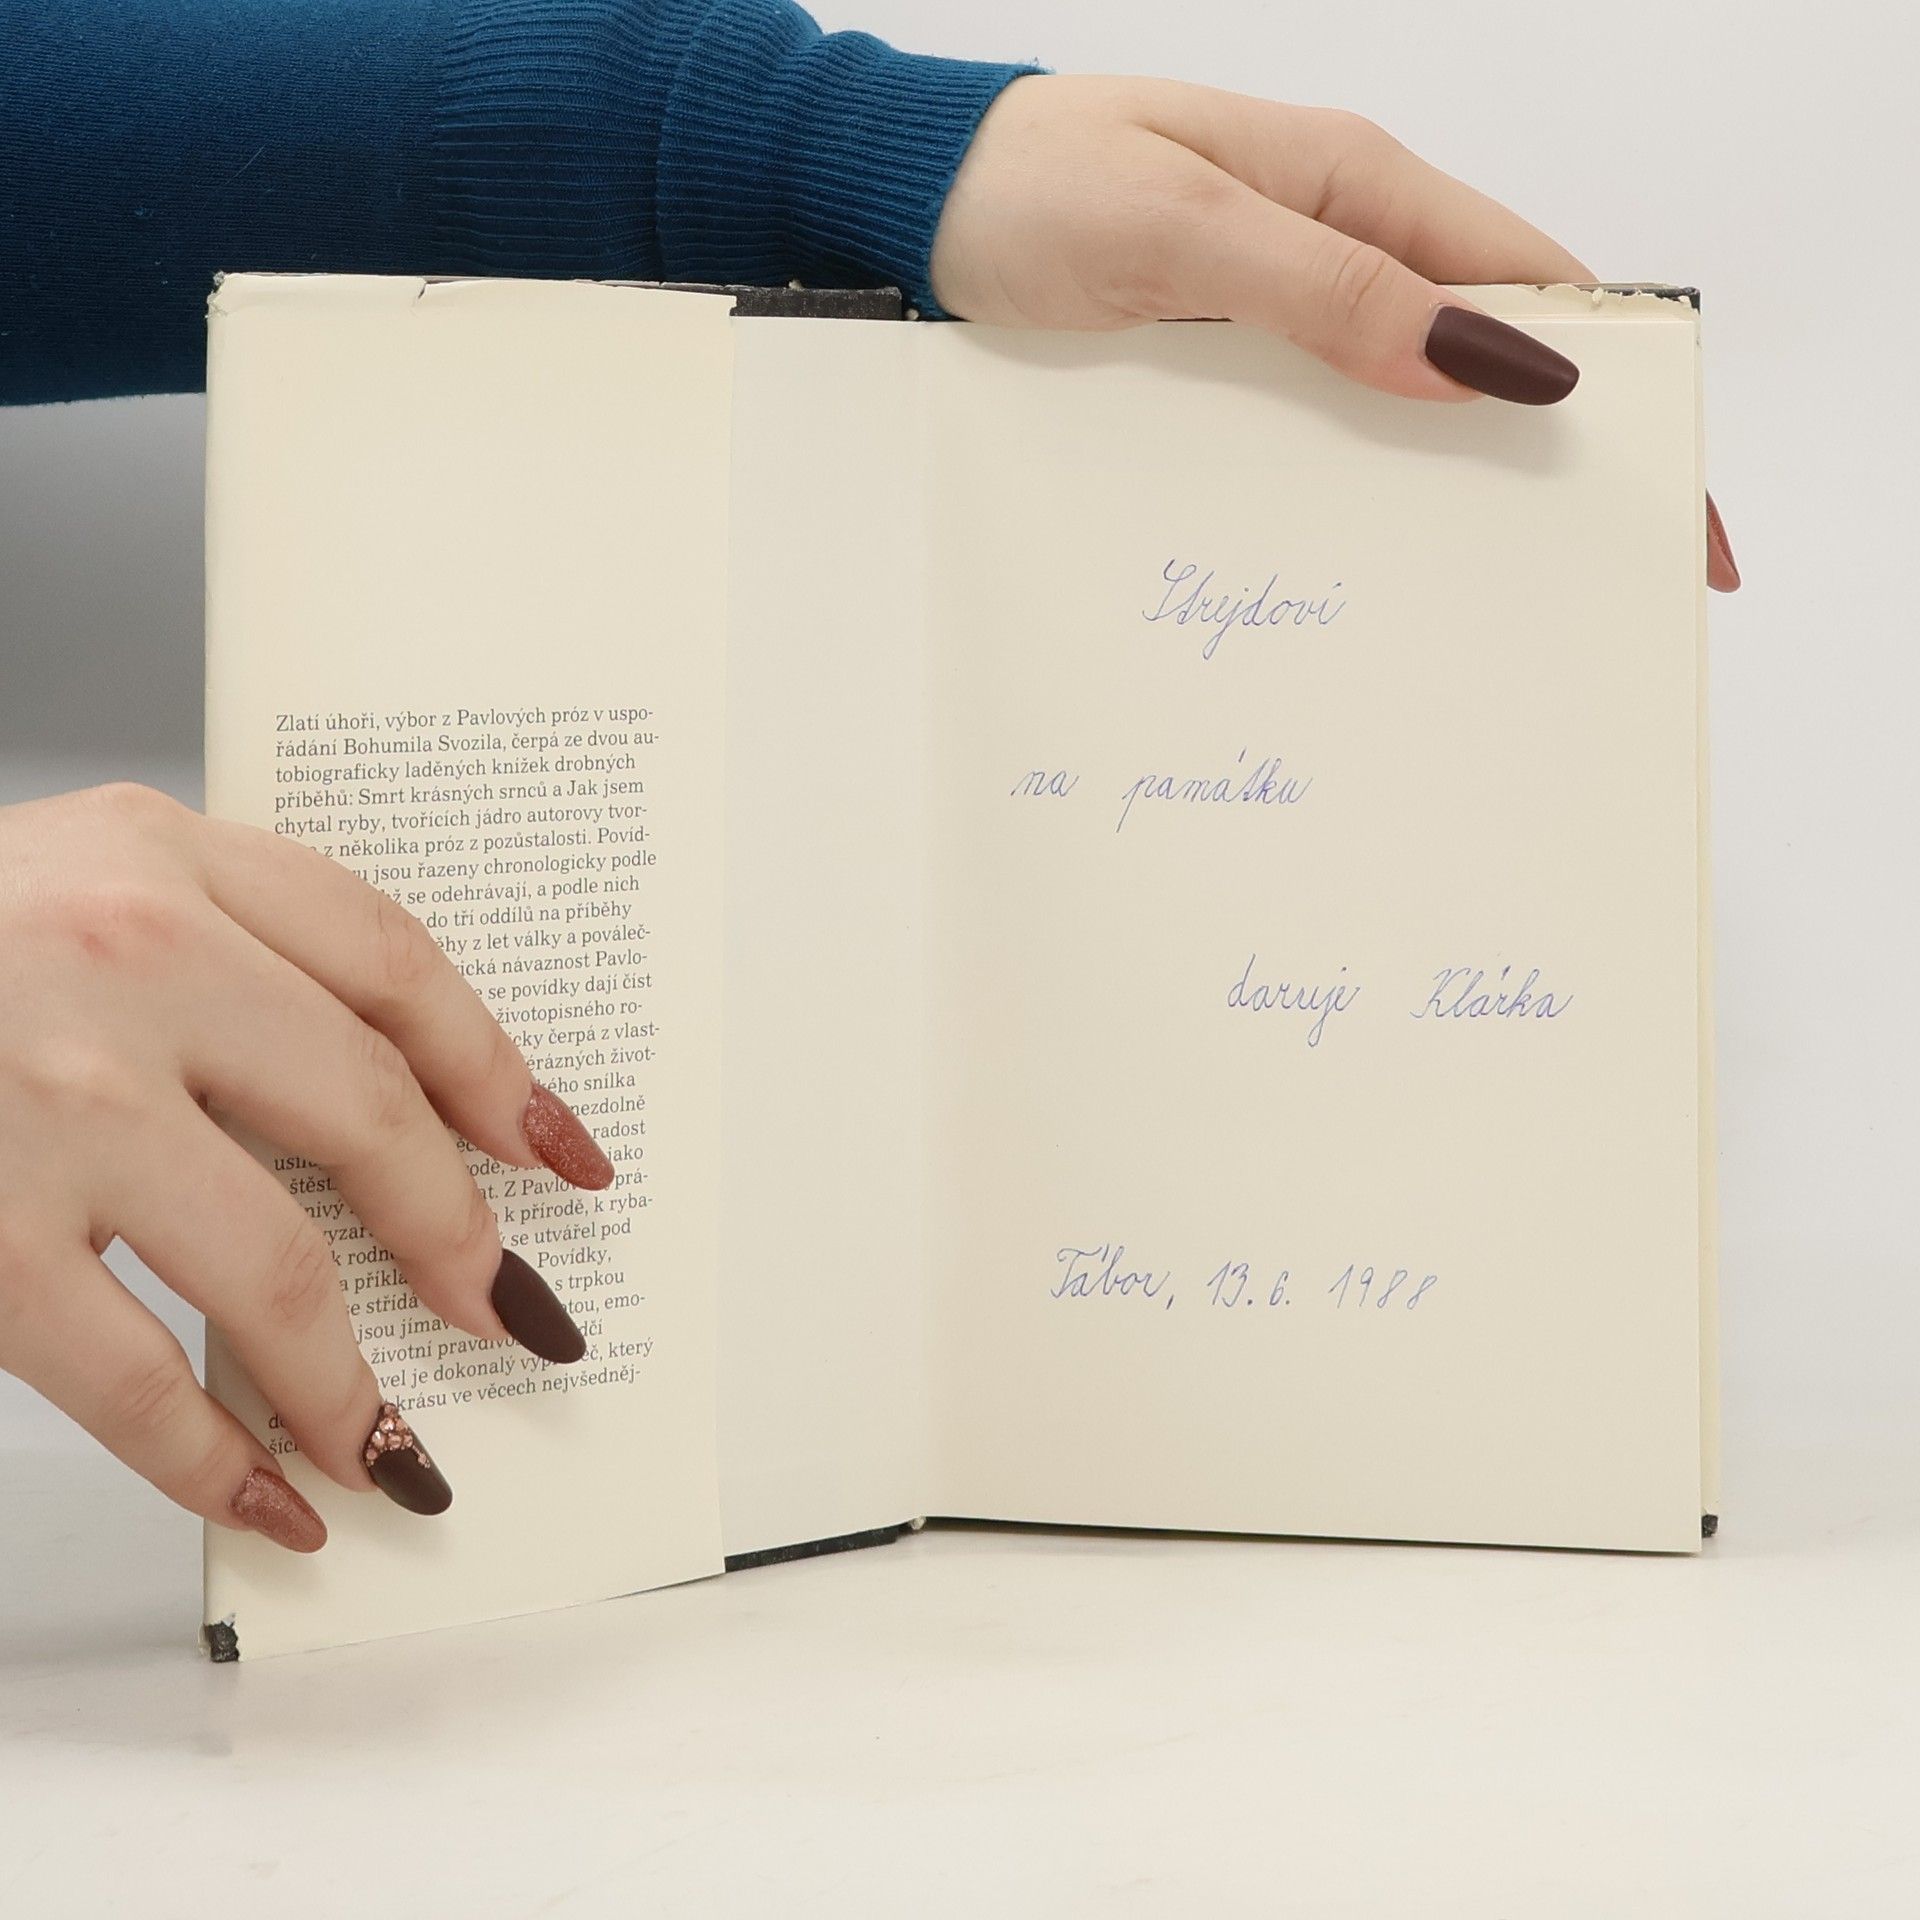 Zlatí úhoři, výbor z Pavlových próz v uspo-
řádání Bohumila Svozila, čerpá ze dvou au-
tobiograficky laděných knížek drobných
příběhů: Smrt krásných srnců a Jak jsem
chytal ryby, tvořících jádro autorovy tvor-
z několika próz z pozůstalosti. Povíd-
jsou řazeny chronologicky podle
se odehrávají, a podle nich
do tří oddílů na příběhy
z let války a pováleč-
návaznost Pavlo-
se povídky dají číst
životopisného ro-
čerpá z vlast-
život-
snílka
nezdolně
radost
jako
Z prá-
k přírodě, k ryba-
se utvářel pod
k Povídky,
s trpkou
střídá emo-
jsou
životní který
je dokonalý
krásu ve věcech nejvšedněj-
Strejdovi
na památku
daruje Klárka
Tábor, 13. 6. 1988